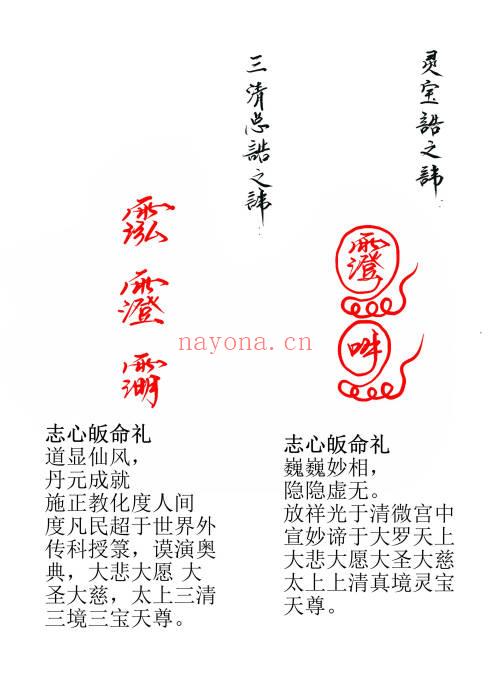 三清总誥之諱
霐
志心皈命礼
道显仙风，
丹元成就
施正教化度人间
度凡民超于世界外
传科授箓，谟演奥
典，大悲大愿 大
圣大慈，太上三清
三境三宝天尊。
灵宝誥之諱
志心皈命礼
巍巍妙相，
隐隐虚无。
放祥光于清微宫中
宣妙谛于大罗天上
大悲大愿大圣大慈
太上上清真境灵宝
天尊。
nayona.cn